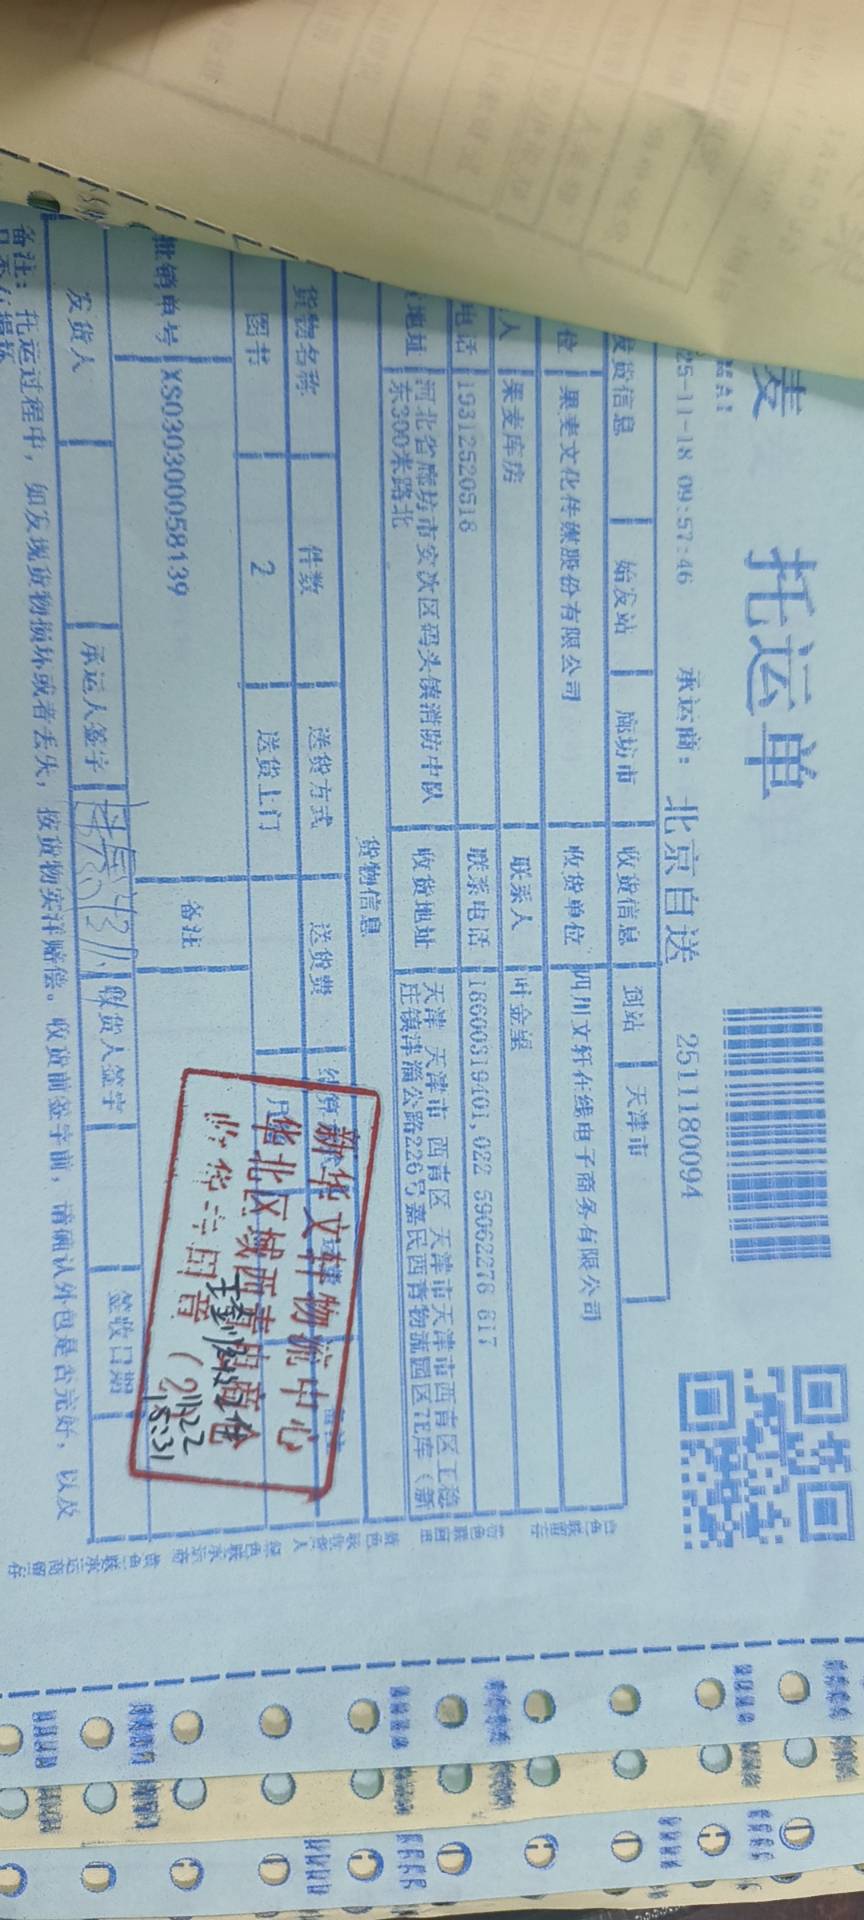 麦 托运单
25-11-18 09:57:46 承运商：北京自送 2511180094
发货信息 始发站 廊坊市 收货信息 到站 天津市
位 果麦文化传媒股份有限公司 收货单位 四川文轩在线电子商务有限公司
人 果麦库房 联系人 叶金玺
电话 19312520518 联系电话 18600319401,022 59062278 817
地址 河北省廊坊市安次区码头镇消防中队 收货地址 天津 天津市 西青区 天津市天津市西青区王稳
东300米路北 庄镇津淄公路226号嘉民西青物流园区正库（新
货物信息
货物名称 件数 送货方式 送货费 备注
图书 2 送货上门
批销单号 XS030300058139 备注
发货人 承运人签字 收货人签字 签收日期
备注：托运过程中，如发现货物损坏或者丢失，按货物实洋赔偿。收货前签字前，请确认外包是否完好，以及
新华文轩物流中心
华北区域西青
收货专用章（2）
11.22
15:31
白色联留存
蓝色联收货人
绿色联承运商
黄色联承运商留存